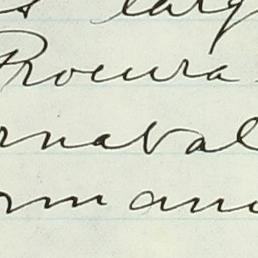 larg
Procura
rnaval
rmano